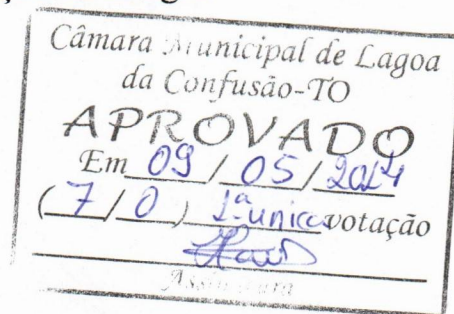 Câmara Municipal de Lagoa
da Confusão-TO
APROVADO
Em 09 / 05 / 2024
( 7 / 0 ) 1ª unica votação
Assinatura